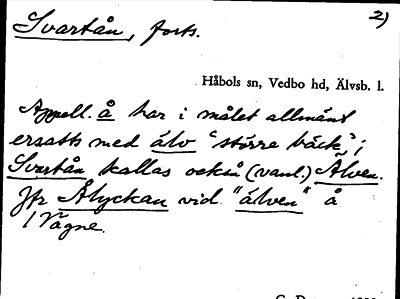 Svartån, forts. 2)
Håbols sn, Vedbo hd, Älvsb. l.
Appell. å har i målet allmänt
ersatts med älv "större bäck";
Svartån kallas också (vanl.) Älven.
Jfr Ålyckan vid "älven" å
1 Vägne.